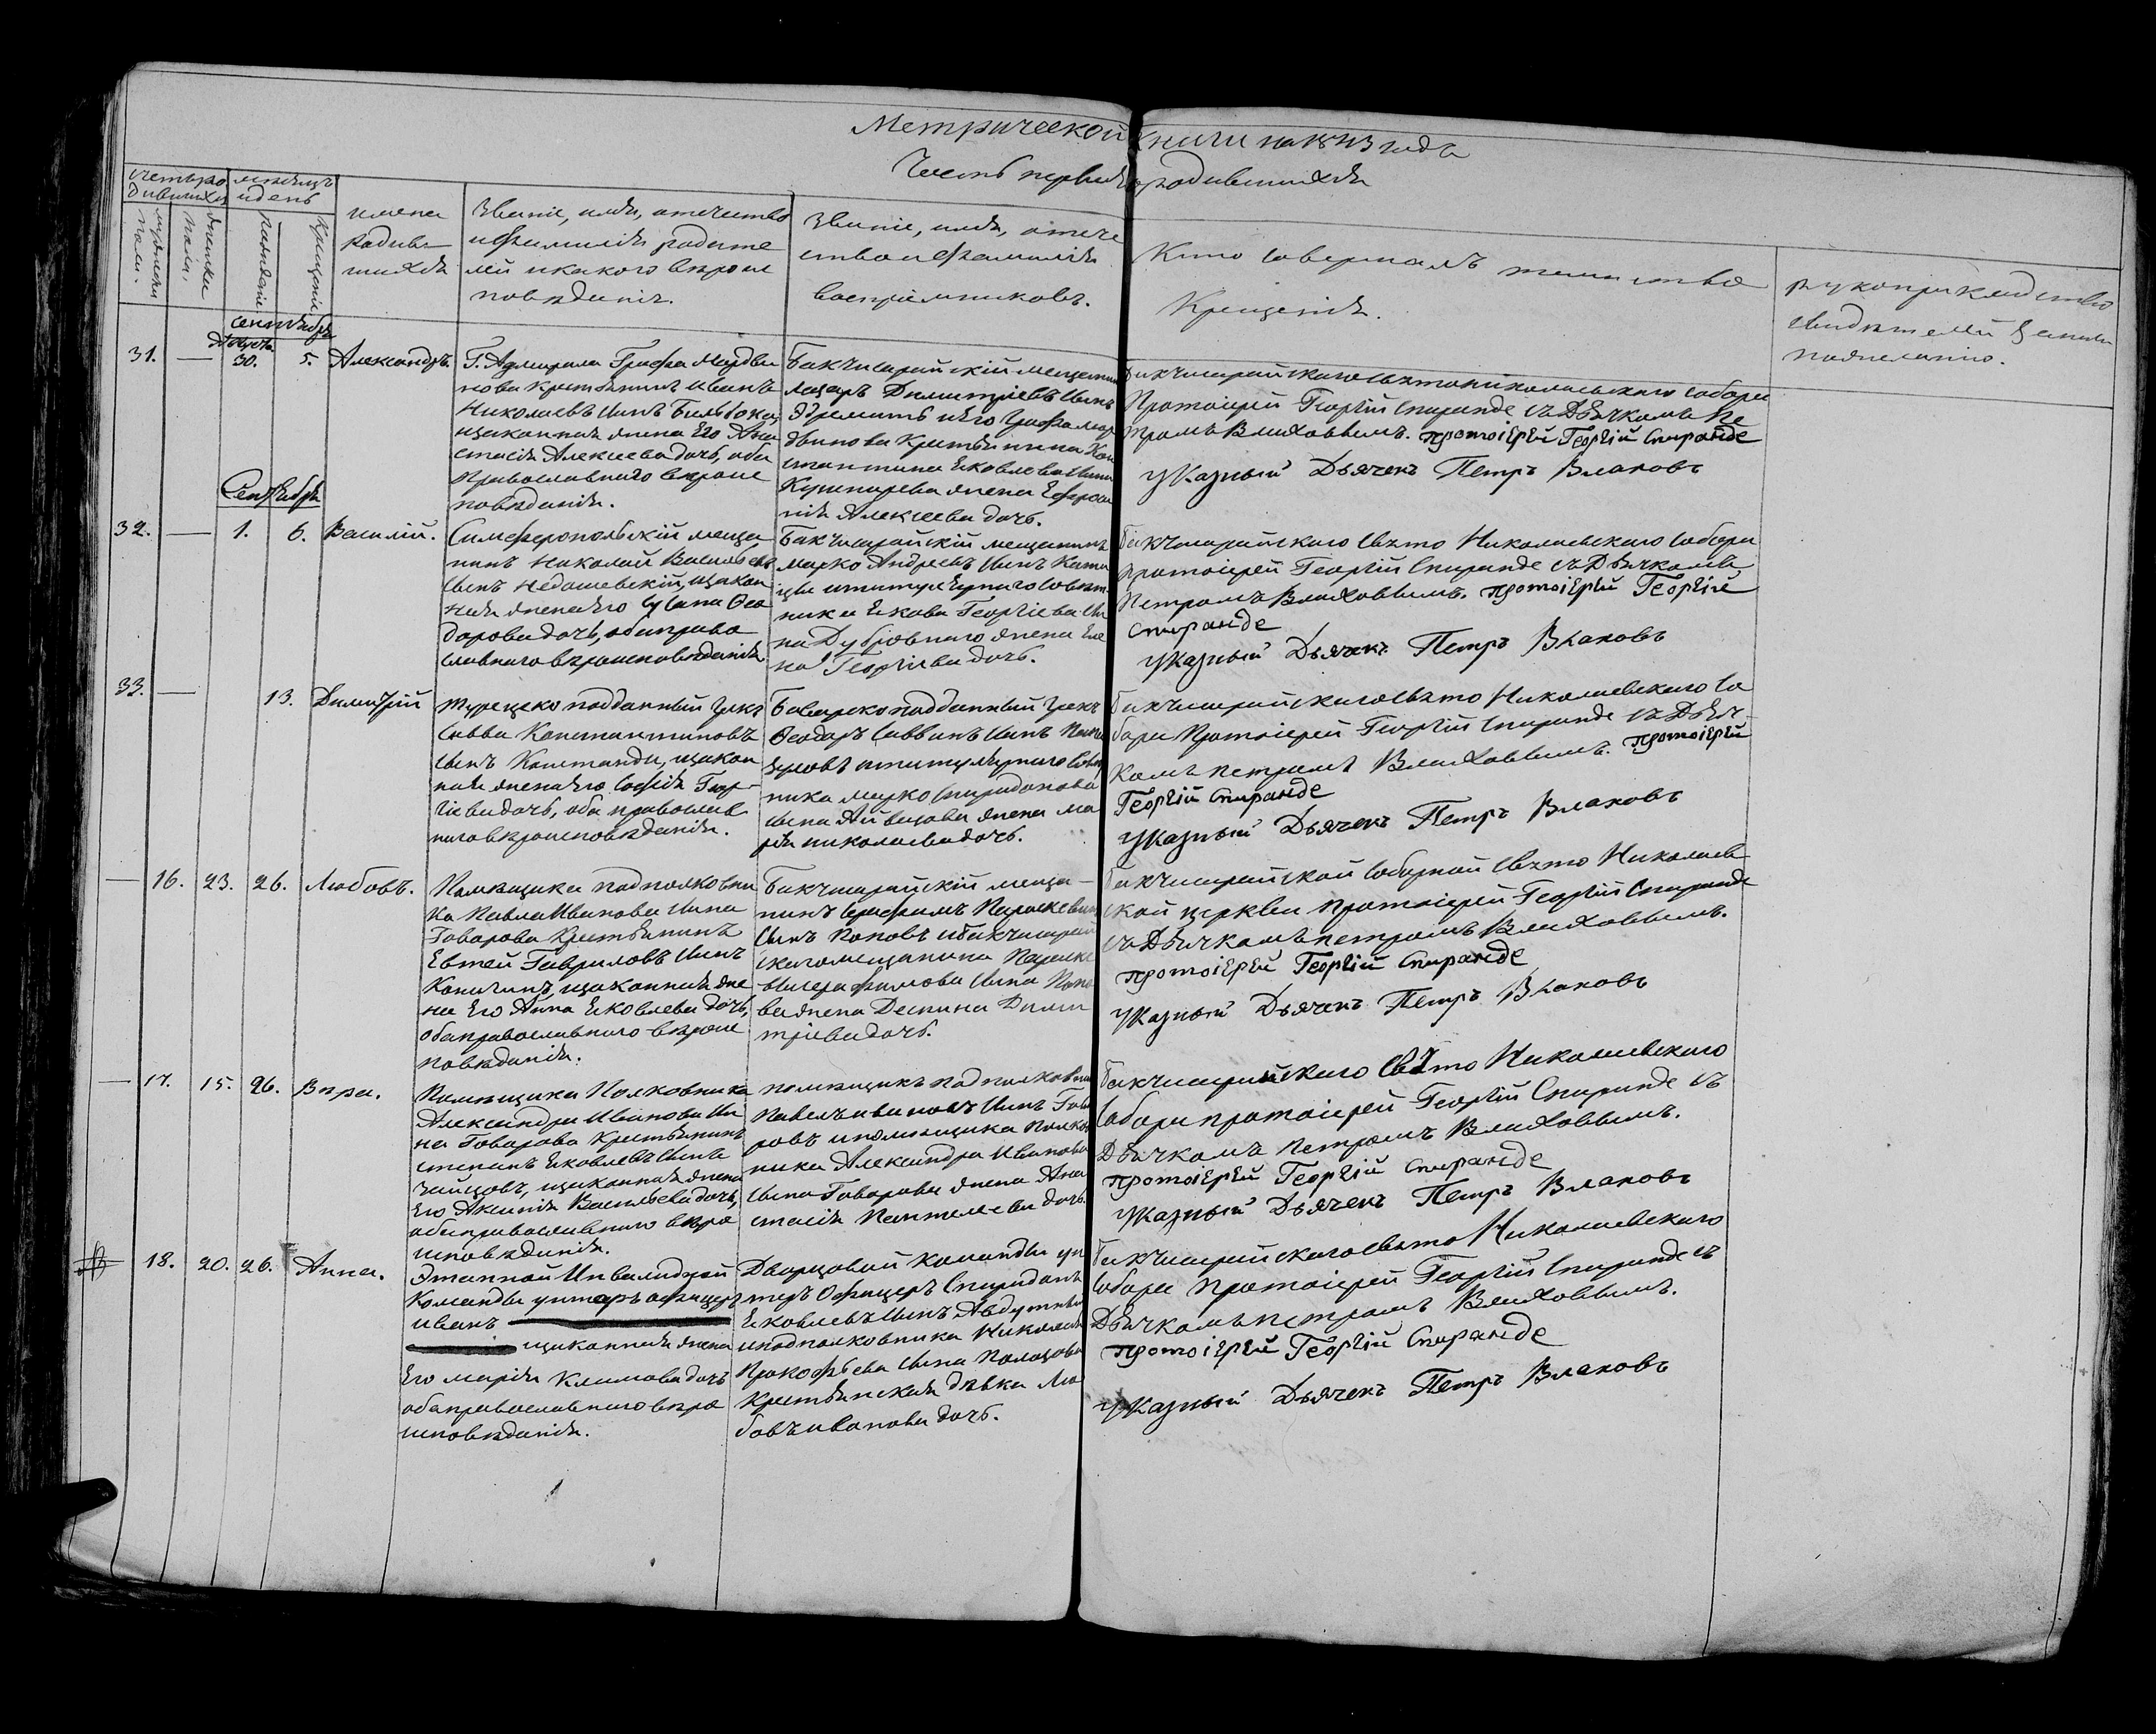 Метрической книги на 1843 годъ
Часть первая о родившихся
счетъ ро
дившихся
мѣсяцъ
и день
мужеска
пола.
женска
пола.
рожденіе
крещеніе
имена
родив
шихся
Званіе, имя, отечество
и Фамилія родите
лей и какого вѣроис
повѣданія.
Званіе, имя, отече
ство и Фамилія
воспріемниковъ.
Кто совершалъ таинство
Крещенія.
рукоприкладство
свидѣтелей записи
по желанію.
сентября
Августа
31. — 30. 5. Александръ.
Г. Адмирала Графа Мордви
нова крестьянинъ Иванъ
Николаевъ сынъ
и законная жена Его Ана
стасія Алексеева дочь, оба
Православнаго вѣроис
повѣданія.
Бакчисарайскій мещанин
Лазарь Димитріевъ сынъ
и Его Графа Мор
двинова Крестьянина Кон
стантина Яковлева сына
Кушнарева жена Ефроси
нія Алексеева дочь.
Бакчисарайскаго Свято Николаевскаго собора
Протоіерей Георгій Спиранде съ Дьячкомъ Пе
тромъ Влаховымъ. Протоіерей Георгій Спиранде
Указный Дьячекъ Петръ Влаховъ
Сентября
32. — 1. 6. Василій.
Симферопольскій меща
нинъ Николай Васильевъ
сынъ Недошевскій, и закон
ная жена Его Ѳео
дорова дочь, оба право
славнаго вѣроисповѣданія
Бакчисарайскій мещанинъ
Марко Андреевъ сынъ
и титулярнаго совѣт
ника Якова Георгіева сы
на жена Еле
на Георгіева дочь.
Бакчисарайскаго Свято Николаевскаго собора
протоіерей Георгій Спиранде съ Дьячкомъ
Петромъ Влаховымъ. Протоіерей Георгій
Спиранде
Указный Дьячекъ Петръ Влаховъ
33. — 13. Димитрій
Турецкоподданный грекъ
Савва Константиновъ
сынъ Констанди, и закон
ная жена Его Софія Геор-
гіева дочь, оба православ
наго вѣроисповѣданія.
подданный Грекъ
Ѳеодоръ Саввинъ сынъ
и титулярнаго совѣт
ника Марко Спиридонова
сына жена Ма
рія Николаева дочь.
Бакчисарайскаго Свято Николаевскаго Со
бора Протоіерей Георгій Спиранде съ Дьяч-
комъ Петромъ Влаховымъ. Протоіерей
Георгій Спиранде
Указный Дьячекъ Петръ Влаховъ
— 16. 23. 26. Любовь.
Помѣщика подполковни
ка Павла Иванова сына
Говорова Крестьянинъ
Евтей Гавриловъ сынъ
и законная же
на Его Анна Яковлева дочь,
оба православнаго вѣроис
повѣданія.
Бакчисарайскій меща-
нинъ Серафимъ Параскевинъ
сынъ Поповъ и бакчисарай
скаго мещанина Параске
вы Серафимова сына Попо
ва жена Деспина Дими
тріева дочь.
Бакчисарайской Соборной Свято Николаев
ской церкви Протоіерей Георгій Спиранде
съ Дьячкомъ Петромъ Влаховымъ.
Протоіерей Георгій Спиранде
Указный Дьячекъ Петръ Влаховъ
— 17. 15. 26. Вѣра.
Помѣщика Полковника
Александра Иванова сы
на Говорова Крестьянинъ
Степанъ Яковлевъ сынъ
Зайцовъ, и законная жена
Его Аксинія Васильева дочь,
оба православнаго вѣро
исповѣданія.
помѣщикъ подполковни
Павелъ Ивановъ сынъ Гово
ровъ и помѣщика Полков
ника Александра Иванова
сына Говорова жена Ана
стасія Пантелеева дочь.
Бакчисарайскаго Свято Николаевскаго
Собора протоіерей Георгій Спиранде съ
Дьячкомъ Петромъ Влаховымъ.
Протоіерей Георгій Спиранде
Указный Дьячекъ Петръ Влаховъ
18. 20. 26. Анна.
Этапной Инвалидной
Команды унтеръ офицеръ
Иванъ
и законная жена
Его Марія Климова дочь
оба православнаго вѣро
исповѣданія.
Дворцовой Команды ун
теръ Офицеръ Спиридонъ
Яковлевъ сынъ
и подполковника Николая
Прокофьева сына
Крестьянская дѣвка Лю
бовь Иванова дочь.
Бакчисарайскаго Свято Николаевскаго
Собора Протоіерей Георгій Спиранде съ
Дьячкомъ Петромъ Влаховымъ.
Протоіерей Георгій Спиранде
Указный Дьячекъ Петръ Влаховъ